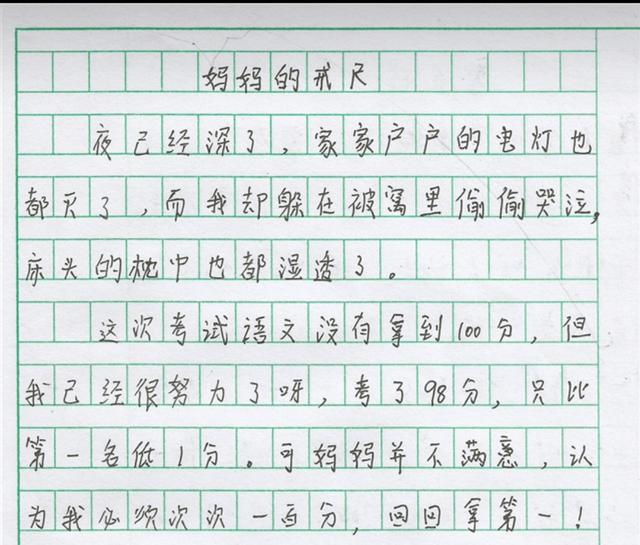 妈妈的戒尺
夜已经深了，家家户户的电灯也
都灭了，而我却躲在被窝里偷偷哭泣，
床头的枕巾也都湿透了。
这次考试语文没有拿到100分，但
我已经很努力了呀，考了98分，只比
第一名低1分。可妈妈并不满意，认
为我必须次次一百分，回回拿第一！